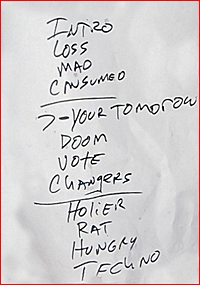 INTRO
LOSS
MAD
CNSUMED
>-YOUR TOMORROW
DOOM
VOTE
CHANGERS
HOLIER
RAT
HUNGRY
TECHNO